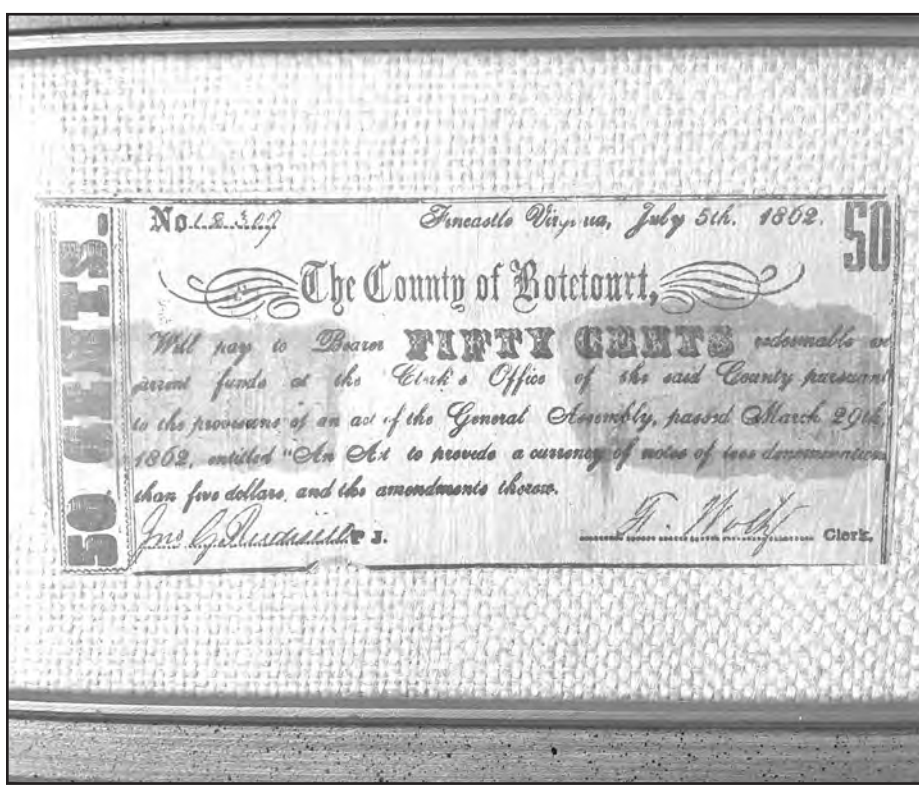 50 CENTS.
No. 12309 Fincastle Virginia, July 5th. 1862.
50
The County of Botetourt,
Will pay to Bearer FIFTY CENTS redeemable in
current funds at the Clerk's Office of the said County pursuant
to the provisions of an act of the General Assembly, passed March 29th,
1862, entitled "An Act to provide a currency of notes of less denomination
than five dollars, and the amendments thereto.
Jno G. P. J.
F. Clerk.